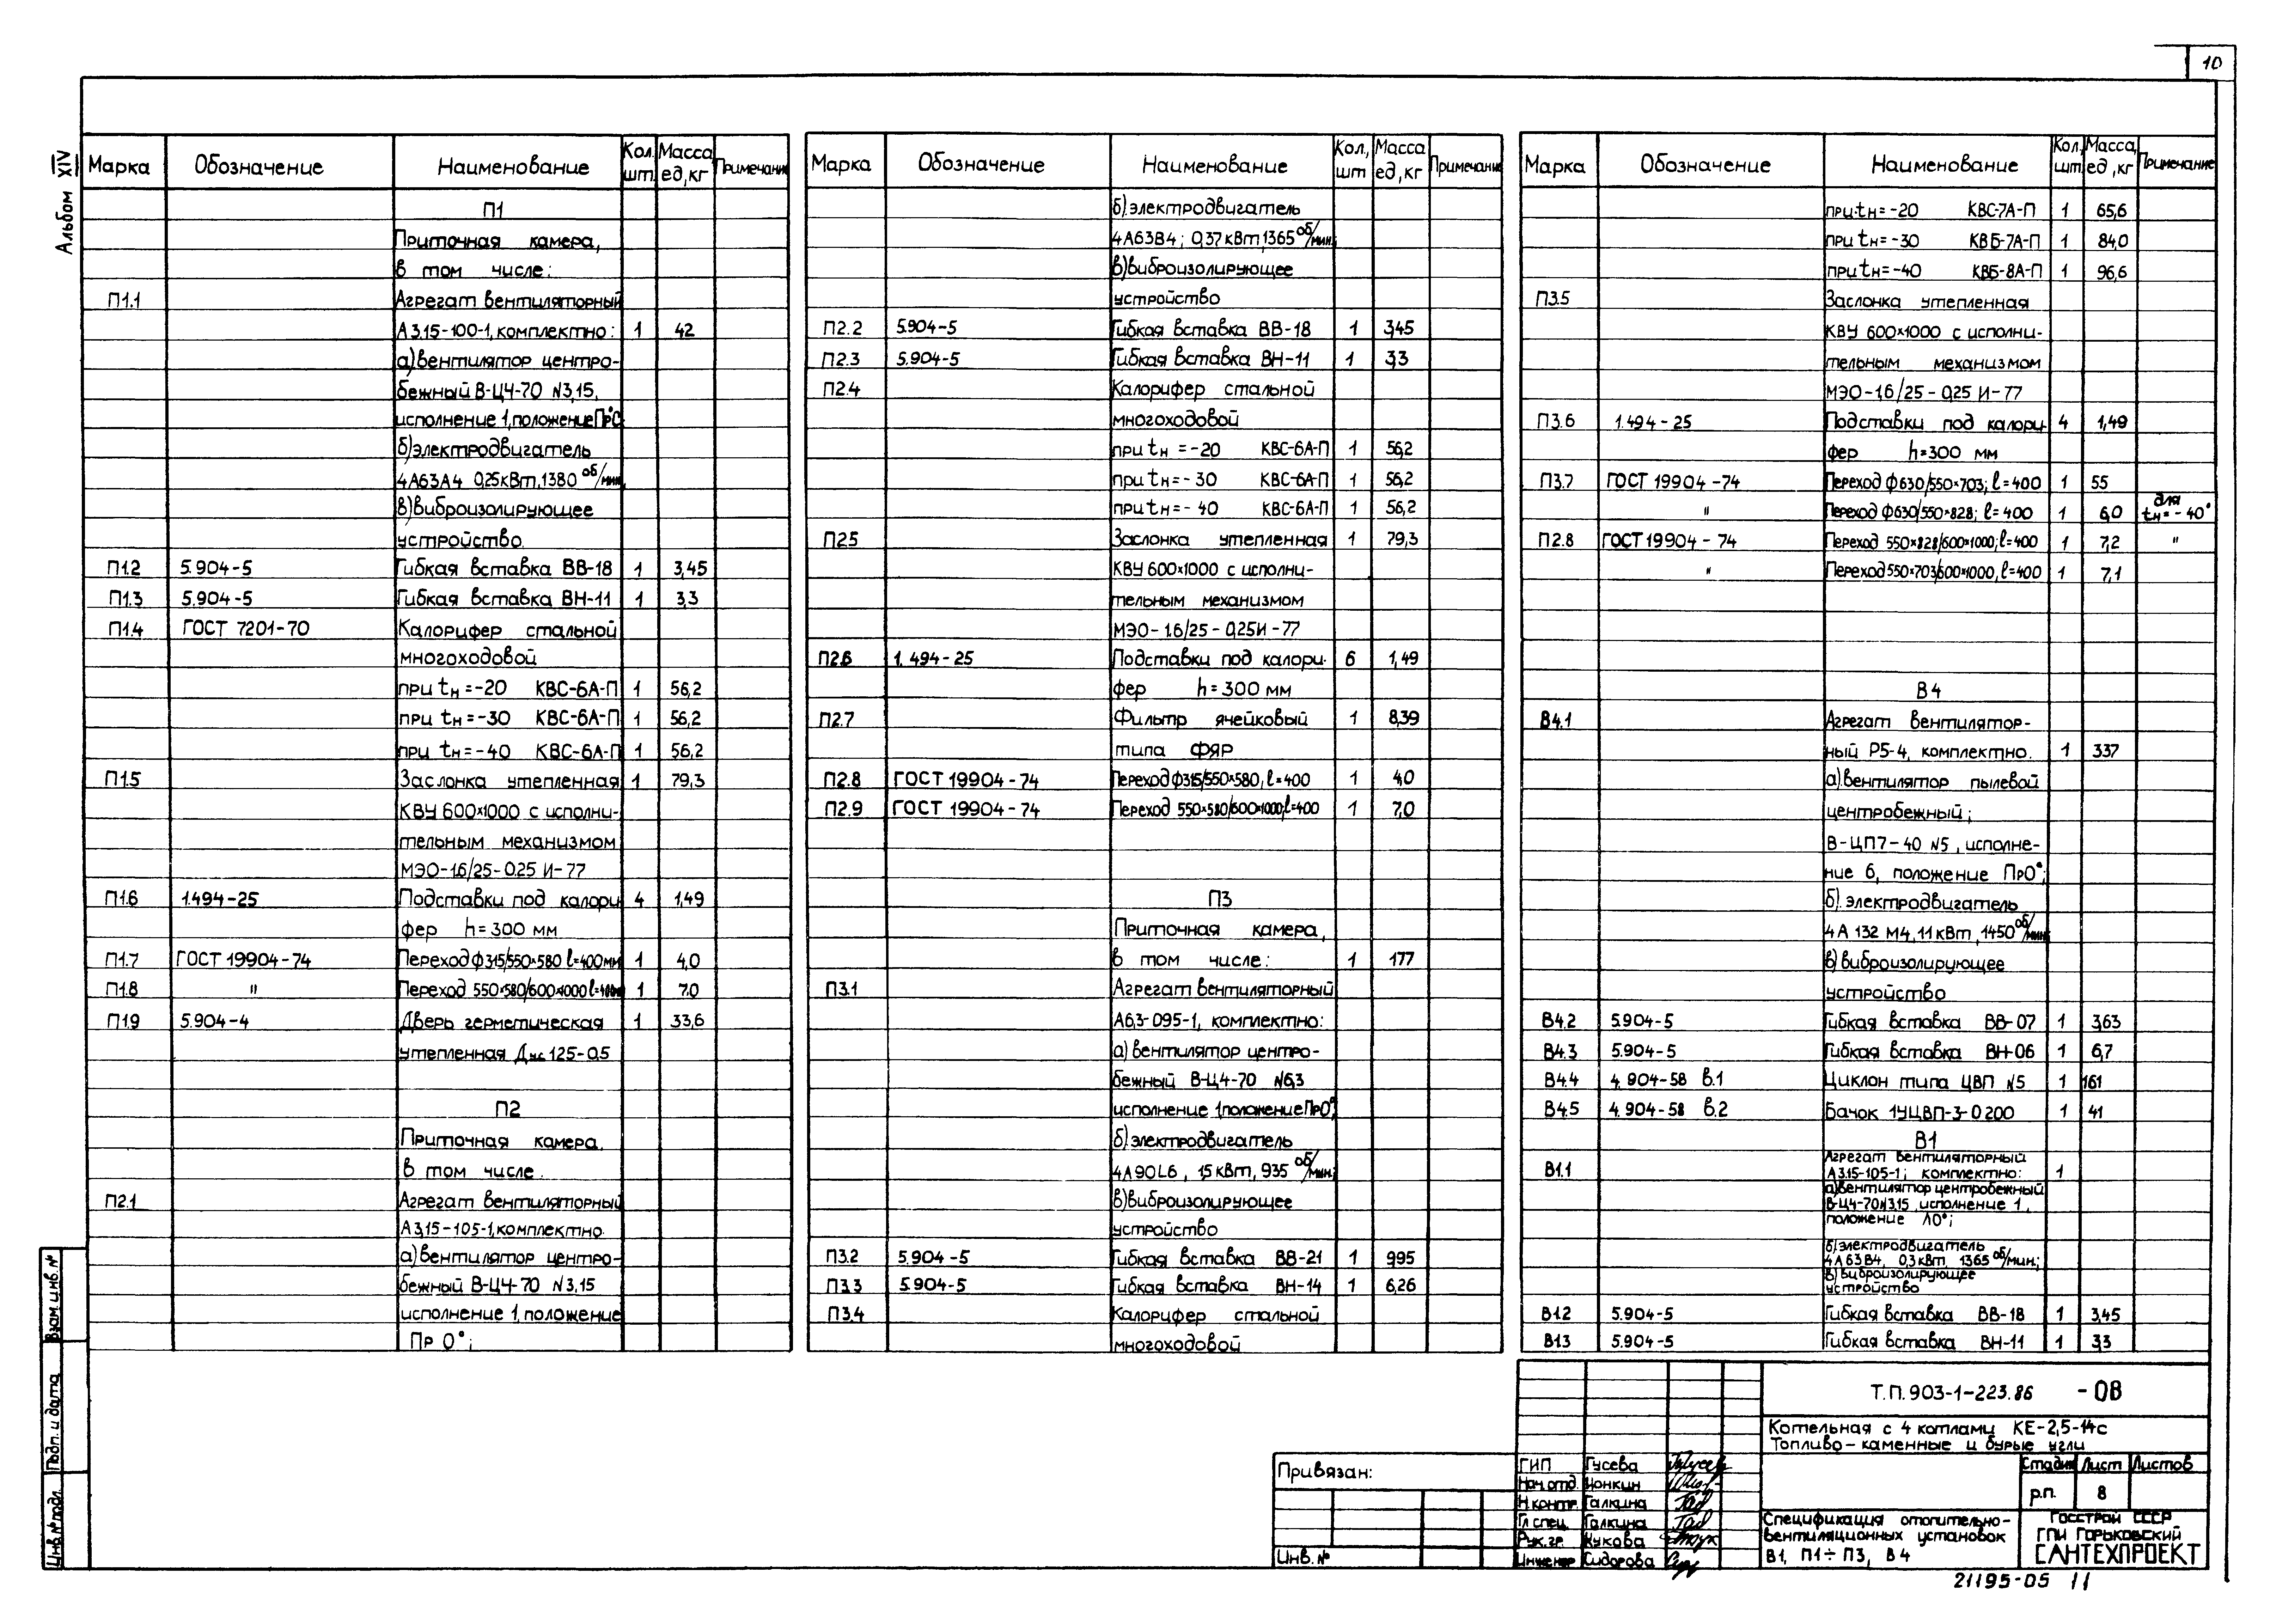 10
Альбом XIV
Марка Обозначение Наименование Кол. шт. Масса ед,кг Примечание
П1
Приточная камера,
в том числе:
П1.1 Агрегат вентиляторный
А3,15-100-1, комплектно: 1 42
а)вентилятор центро-
бежный В-Ц4-70 N3,15,
исполнение 1, положение Пр0°
б)электродвигатель
4А63А4 0,25кВт,1380 об/мин,
в)виброизолирующее
устройство.
П1.2 5.904-5 Гибкая вставка ВВ-18 1 3,45
П1.3 5.904-5 Гибкая вставка ВН-11 1 3,3
П1.4 ГОСТ 7201-70 Калорифер стальной
многоходовой
при tн=-20 КВС-6А-П 1 56,2
при tн=-30 КВС-6А-П 1 56,2
при tн=-40 КВС-6А-П 1 56,2
П1.5 Заслонка утепленная 1 79,3
КВУ 600×1000 с исполни-
тельным механизмом
МЭО-1.6/25-0.25 И-77
П1.6 1.494-25 Подставки под калори 4 1,49
фер h=300 мм
П1.7 ГОСТ 19904-74 Переход ф315/550×580 ℓ=400мм 1 4,0
П1.8 " Переход 550×580/600×1000 ℓ=400мм 1 7.0
П1.9 5.904-4 Дверь герметическая 1 33,6
утепленная Дус 125-0.5
П2
Приточная камера.
в том числе.
П2.1 Агрегат вентиляторный
А3,15-105-1, комплектно.
а)вентилятор центро-
бежный В-Ц4-70 N3,15
исполнение 1, положение
Пр 0°;
Марка Обозначение Наименование Кол, шт Масса ед,кг Примечание
б).электродвигатель
4А63В4; 0,37кВт,1365 об/мин.
в)виброизолирующее
устройство
П2.2 5.904-5 Гибкая вставка ВВ-18 1 3,45
П2.3 5.904-5 Гибкая вставка ВН-11 1 3,3
П2.4 Калорифер стальной
многоходовой
при tн=-20 КВС-6А-П 1 56,2
при tн=-30 КВС-6А-П 1 56,2
при tн=-40 КВС-6А-П 1 56,2
П2.5 Заслонка утепленная 1 79,3
КВУ 600×1000 с исполни-
тельным механизмом
МЭО-1.6/25-0,25И-77
П2.6 1.494-25 Подставки под калори- 6 1,49
фер h=300 мм
П2.7 Фильтр ячейковый 1 8,39
типа ФЯР
П2.8 ГОСТ 19904-74 Переход ф315/550×580, ℓ=400 1 4,0
П2.9 ГОСТ 19904-74 Переход 550×580/600×1000,ℓ=400 1 7,0
П3
Приточная камера,
в том числе: 1 177
П3.1 Агрегат вентиляторный
А6,3-095-1, комплектно:
а)вентилятор центро-
бежный В-Ц4-70 N6,3
исполнение 1,положение Пр0°,
б).электродвигатель
4А90L6, 1,5кВт, 935 об/мин;
в)виброизолирующее
устройство
П3.2 5.904-5 Гибкая вставка ВВ-21 1 9,95
П3.3 5.904-5 Гибкая вставка ВН-14 1 6,26
П3.4 Калорифер стальной
многоходовой
Марка Обозначение Наименование Кол. шт. Масса ед,кг Примечание
при tн=-20 КВС-7А-П 1 65,6
при tн=-30 КВБ-7А-П 1 84,0
при tн=-40 КВБ-8А-П 1 96,6
П3.5 Заслонка утепленная
КВУ 600×1000 с исполни-
тельным механизмом
МЭО-1,6/25-0,25 И-77
П3.6 1.494-25 Подставки под калори- 4 1,49
фер h=300 мм
П3.7 ГОСТ 19904-74 Переход ф630/550×703; ℓ=400 1 5,5
" Переход ф630/550×828; ℓ=400 1 6,0 для tн=-40°
П2.8 ГОСТ 19904-74 Переход 550×828/600×1000;ℓ=400 1 7,2 "
" Переход 550×703/600×1000,ℓ=400 1 7,1
В4
В4.1 Агрегат вентилятор-
ный Р5-4, комплектно. 1 337
а)вентилятор пылевой
центробежный;
В-ЦП7-40 N5, исполне-
ние 6, положение Пр0°;
б).электродвигатель
4А 132 М4, 11кВт, 1450 об/мин
в)виброизолирующее
устройство
В4.2 5.904-5 Гибкая вставка ВВ-07 1 3,63
В4.3 5.904-5 Гибкая вставка ВН-06 1 6,7
В4.4 4.904-58 в.1 Циклон типа ЦВП N5 1 161
В4.5 4.904-58 в.2 Бачок 1УЦВП-3-0 200 1 41
В1
В1.1 Агрегат вентиляторный
А3,15-105-1; комплектно: 1
а)вентилятор центробежный
В-Ц4-70N3,15, исполнение 1,
положение Л0°;
б)электродвигатель
4А63В4, 0,3кВт, 1365 об/мин;
в)виброизолирующее
устройство
В1.2 5.904-5 Гибкая вставка ВВ-18 1 3,45
В1.3 5.904-5 Гибкая вставка ВН-11 1 3,3
Взам.инв.№
Подп. и дата
Инв.№ подл.
Т.П.903-1-223.86 -ОВ
Котельная с 4 котлами КЕ-2,5-14с
Топливо-каменные и бурые угли
Стадия Лист Листов
р.п. 8
Спецификация отопительно-
вентиляционных установок
В1, П1÷П3, В4
Госстрой СССР
ГПИ Горьковский
САНТЕХПРОЕКТ
Привязан:
Инв.№
ГИП Гусева
Нач.отд. Ионкин
Н.контр. Галкина
Гл.спец. Галкина
Рук.гр. Жукова
Инженер Сидорова
21195-05 11